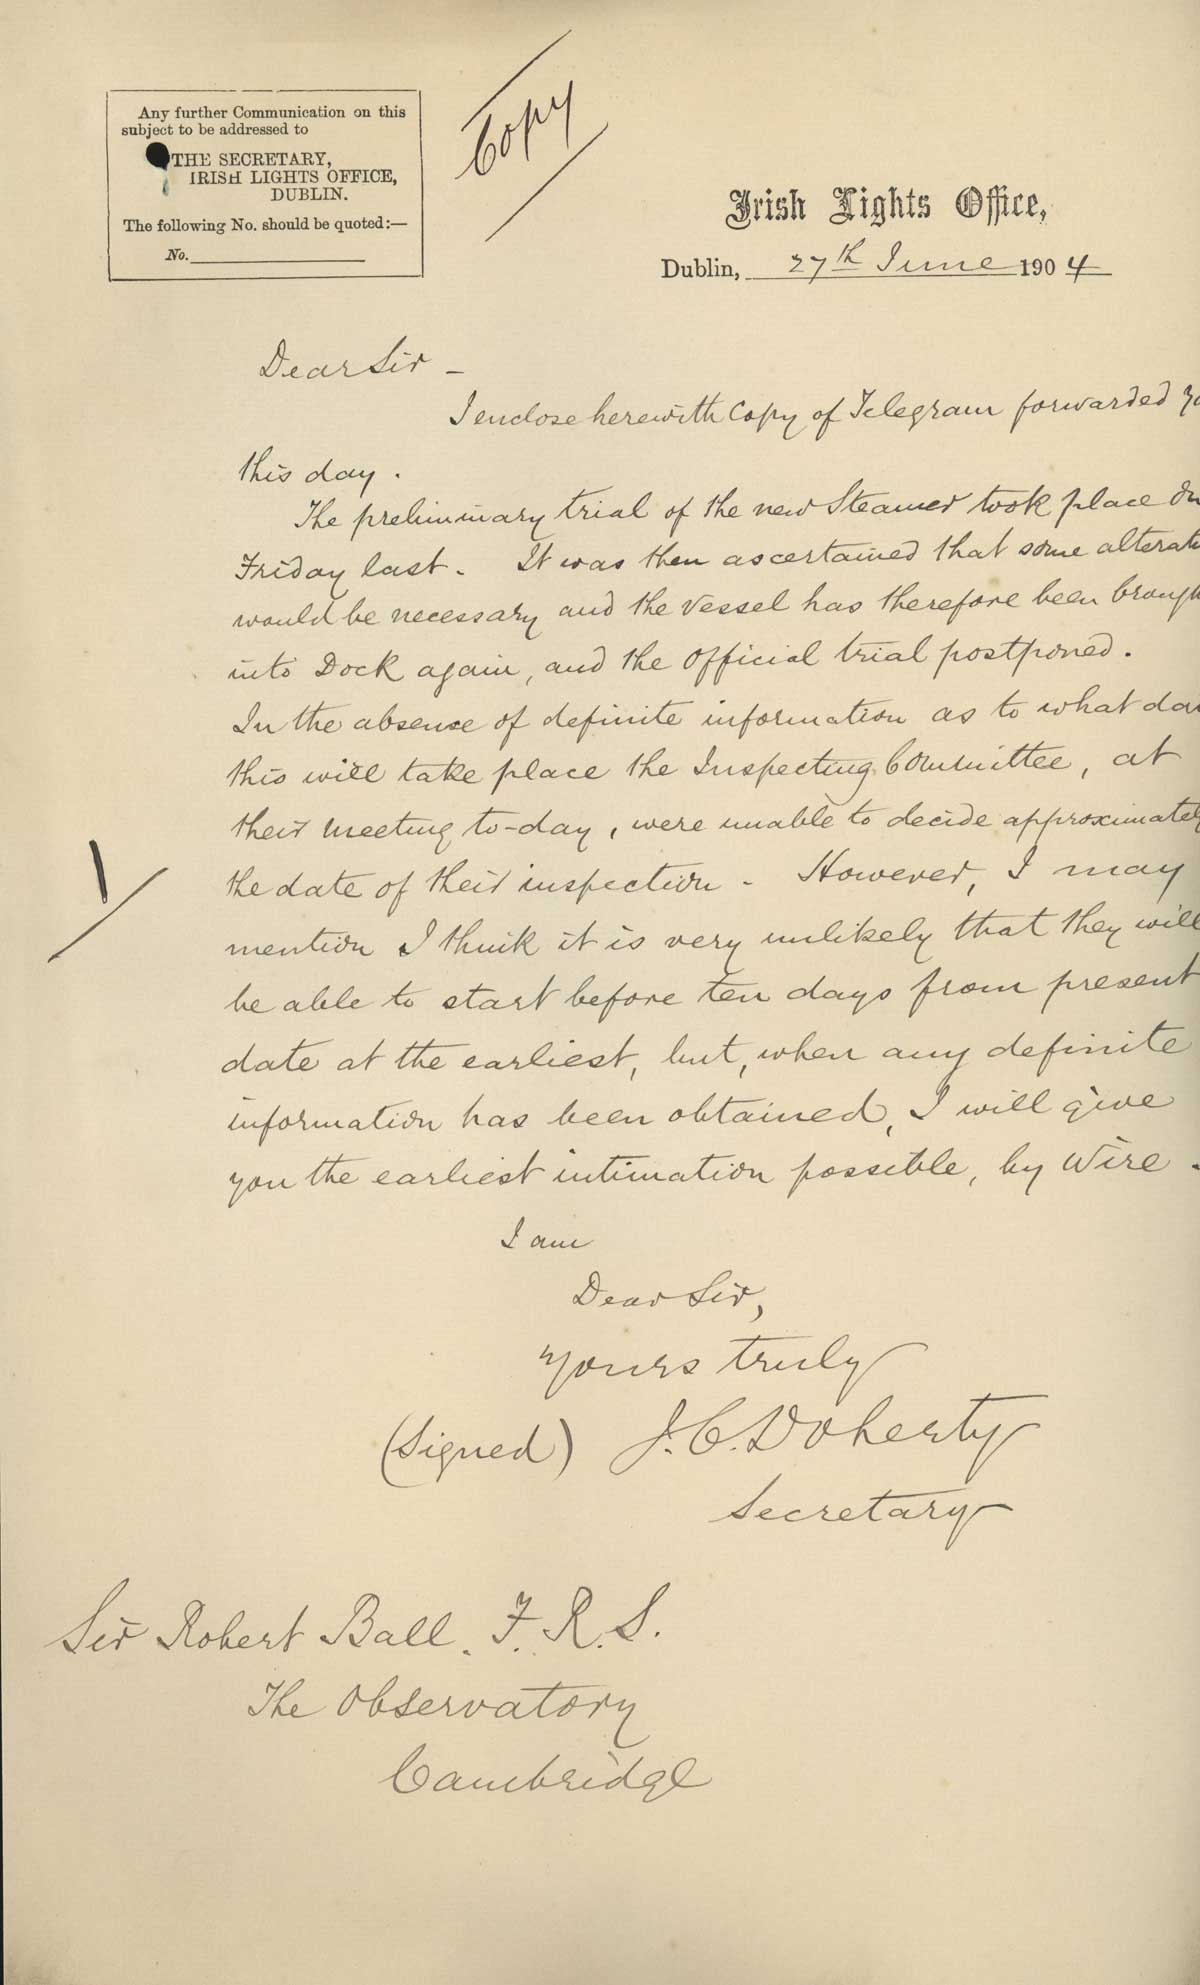 Any further Communication on this
subject to be addressed to
THE SECRETARY,
IRISH LIGHTS OFFICE,
DUBLIN.
The following No. should be quoted:—
No.
Copy
Irish Lights Office,
Dublin, 27th June 1904
Dear Sir -
I enclose herewith Copy of Telegram forwarded yo
this day.
The preliminary trial of the new Steamer took place on
Friday last. It was then ascertained that some alterati
would be necessary and the vessel has therefore been brough
into Dock again, and the official trial postponed.
In the absence of definite information as to what da
this will take place the Inspecting Committee, at
their meeting to-day, were unable to decide approximately
the date of their inspection. However, I may
mention I think it is very unlikely that they will
be able to start before ten days from present
date at the earliest, but, when any definite
information has been obtained, I will give
you the earliest intimation possible, by Wire.
I am
Dear Sir,
Yours truly
(Signed) J. C. Doherty
Secretary
Sir Robert Ball. F.R.S.
The Observatory
Cambridge